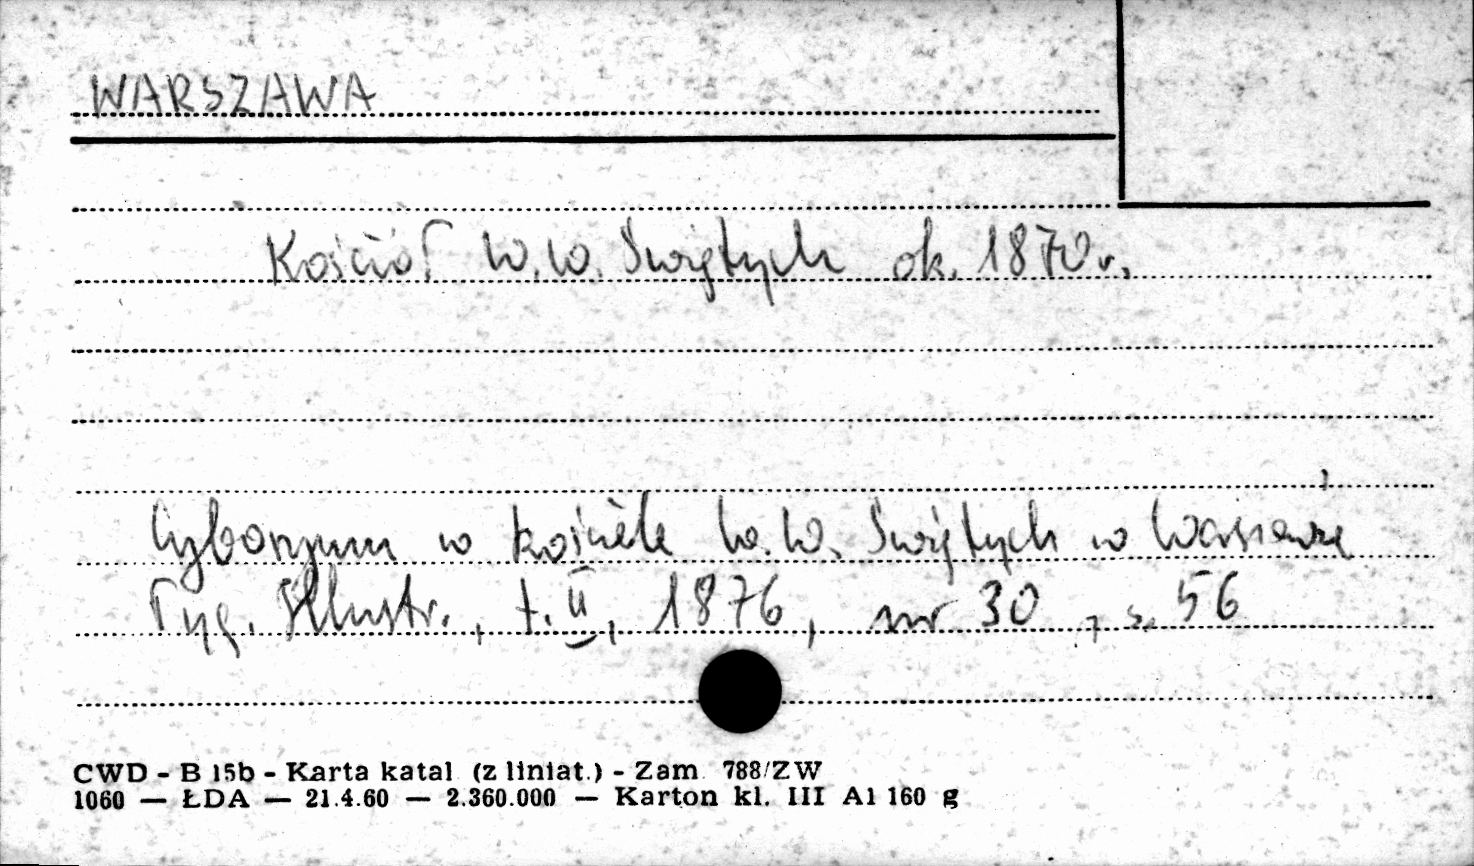 WARSZAWA
Kościół W.W. Świętych ok. 1870 r.
Cyborjum w kościele W.W. Świętych w Warszawie
Tyg. Illustr., t. II, 1876, nr 30, s. 56
CWD - B 15b - Karta katal (z liniat.) - Zam 788/ZW
1060 — ŁDA — 21.4.60 — 2.360.000 — Karton kl. III A1 160 g